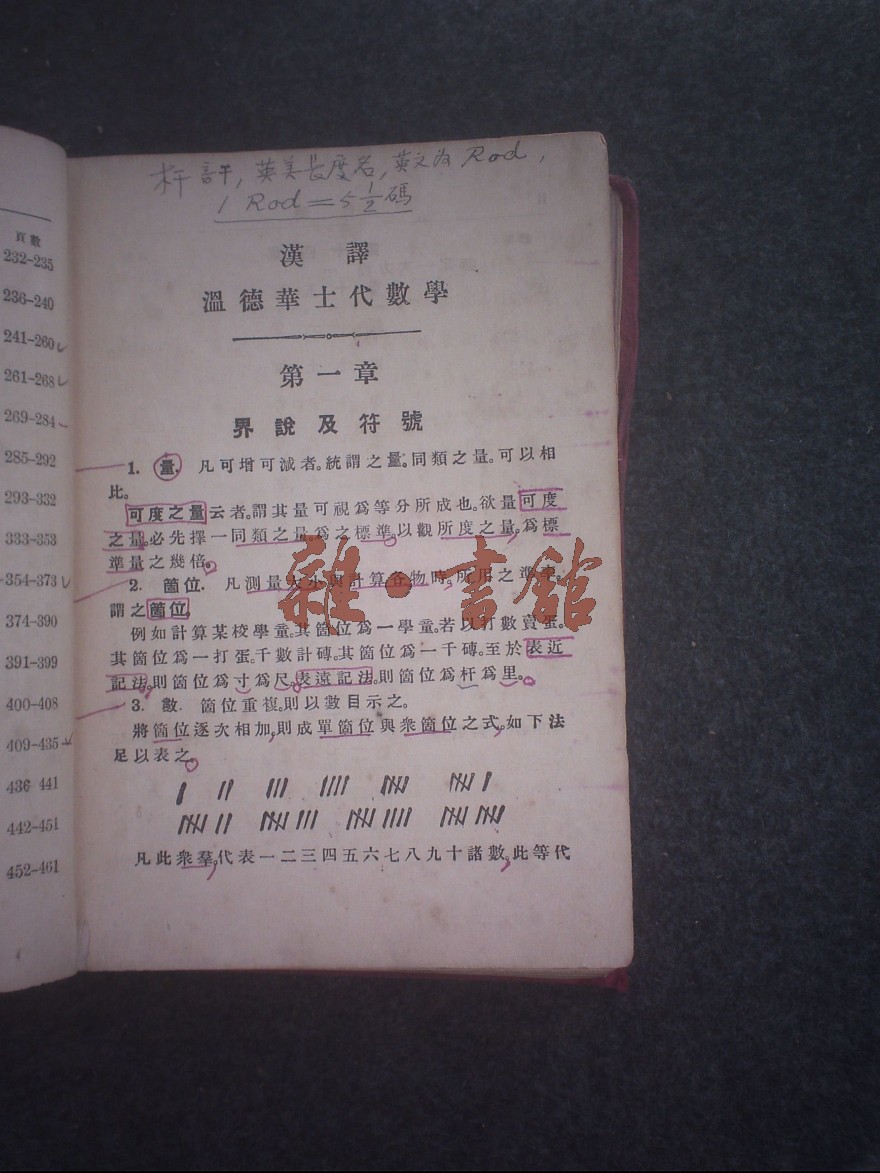 頁數
232-235
236-240
241-260
261-268
269-284
285-292
293-332
333-353
354-373
374-390
391-399
400-408
409-435
436 441
442-451
452-461
杆 音干, 英美長度名, 英文为 Rod,
1 Rod = 5 1/2 碼
漢譯
溫德華士代數學
第一章
界說及符號
1. 量. 凡可增可減者。統謂之量。同類之量。可以相
比。
可度之量云者。謂其量可視爲等分所成也。欲量可度
之量。必先擇一同類之量。爲之標準。以觀所度之量。爲標
準量之幾倍。
2. 箇位. 凡測量大小與計算各物時。所用之準率。
謂之箇位。
例如計算某校學童。其箇位爲一學童。若以打數賣蛋。
其箇位爲一打蛋。千數計磚。其箇位爲一千磚。至於表近
記法。則箇位爲寸爲尺。表遠記法。則箇位爲杆爲里。
3. 數. 箇位重複。則以數目示之。
將箇位逐次相加,則成單箇位與衆箇位之式,如下法
足以表之。
凡此衆羣,代表一二三四五六七八九十諸數,此等代
雜·書館